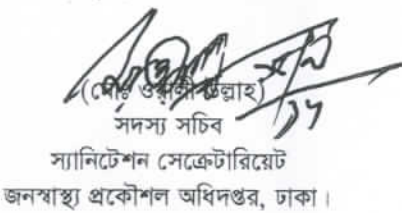 (মোঃ ওয়ালী উল্লাহ)
সদস্য সচিব
স্যানিটেশন সেক্রেটারিয়েট
জনস্বাস্থ্য প্রকৌশল অধিদপ্তর, ঢাকা।